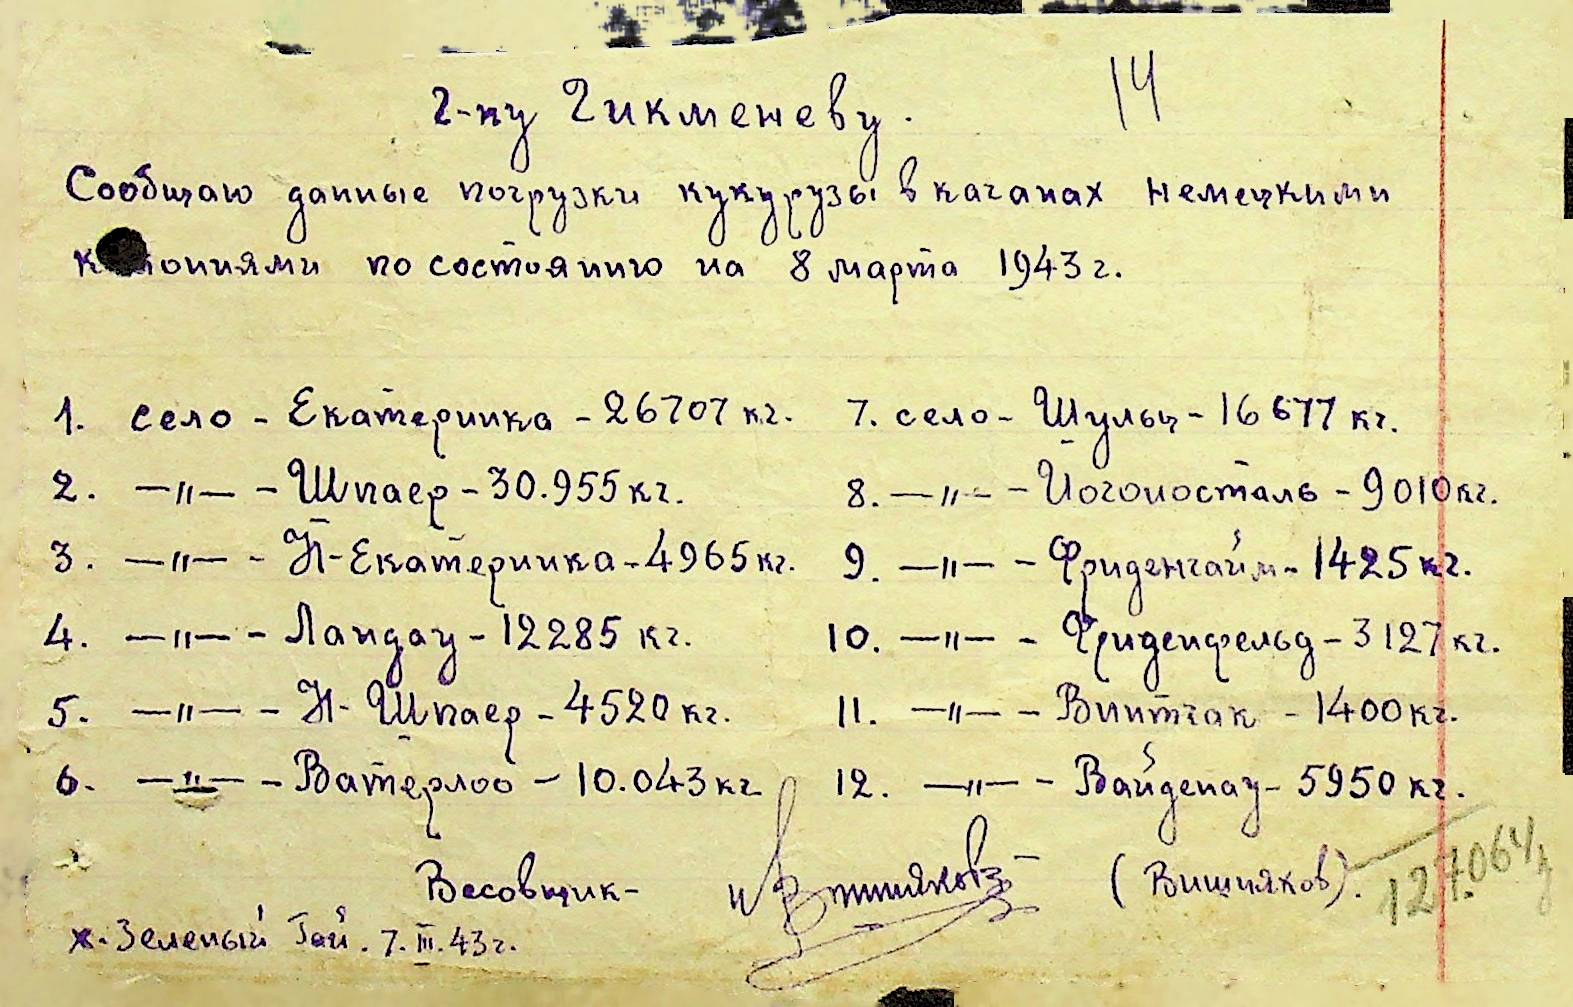 14
г-ну Гикменеву.
Сообщаю данные погрузки кукурузы в качанах немецкими
колониями по состоянию на 8 марта 1943 г.
1. село - Екатеринка - 26707 кг. 7. село - Шульц - 16677 кг.
2. —"— - Шпаер - 30.955 кг. 8. —"— - Йогоносталь - 9010 кг.
3. —"— - Н-Екатеринка - 4965 кг. 9. —"— - Фриденгайм - 1425 кг.
4. —"— - Ландау - 12285 кг. 10. —"— - Фриденфельд - 3127 кг.
5. —"— - Н-Шпаер - 4520 кг. 11. —"— - Виитгак - 1400 кг.
6. —"— - Ватерлоо - 10.043 кг 12. —"— - Вайденау - 5950 кг.
Весовщик - Вишняков (Вишняков).
127.064
х. Зеленый Гай. 7.III.43 г.